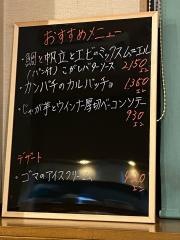 おすすめメニュー
・鯛と帆立とエビのミックスムニエル
(パン付) こがしバターソース 2150
・カンパチのカルパッチョ 1,360
・じゃが芋とウインナー厚切ベーコンソテー
930
デザート
・ゴマのアイスクリーム